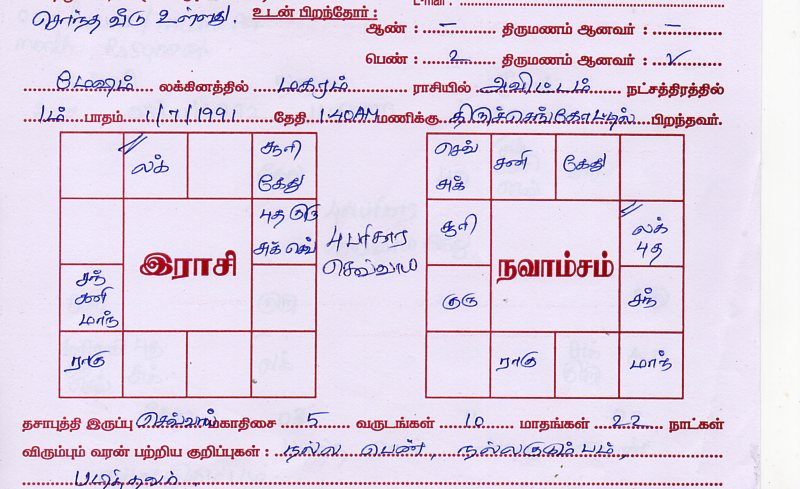 சொந்த வீடு உள்ளது. உடன் பிறந்தோர் :
ஆண் : – திருமணம் ஆனவர் : –
பெண் : 2 திருமணம் ஆனவர் :
மேஷம் லக்கினத்தில் மகரம் ராசியில் அவிட்டம் நட்சத்திரத்தில்
1ம் பாதம் 1/7/1991 தேதி 1:40AM மணிக்கு திருச்செங்கோட்டில் பிறந்தவர்.
லக் சூரி செவ் சனி கேது
கேது சுக்
புத குரு சூரி லக்
சுக் செவ் 4 பரிகார புத
இராசி செவ்வாய் நவாம்சம்
சந் குரு சந்
சனி
மாந்
ராகு ராகு மாந்
தசாபுத்தி இருப்பு செவ்வாய் மகாதிசை 5 வருடங்கள் 10 மாதங்கள் 22 நாட்கள்
விரும்பும் வரன் பற்றிய குறிப்புகள் : நல்ல பெண், நல்லகுடும்பம்,